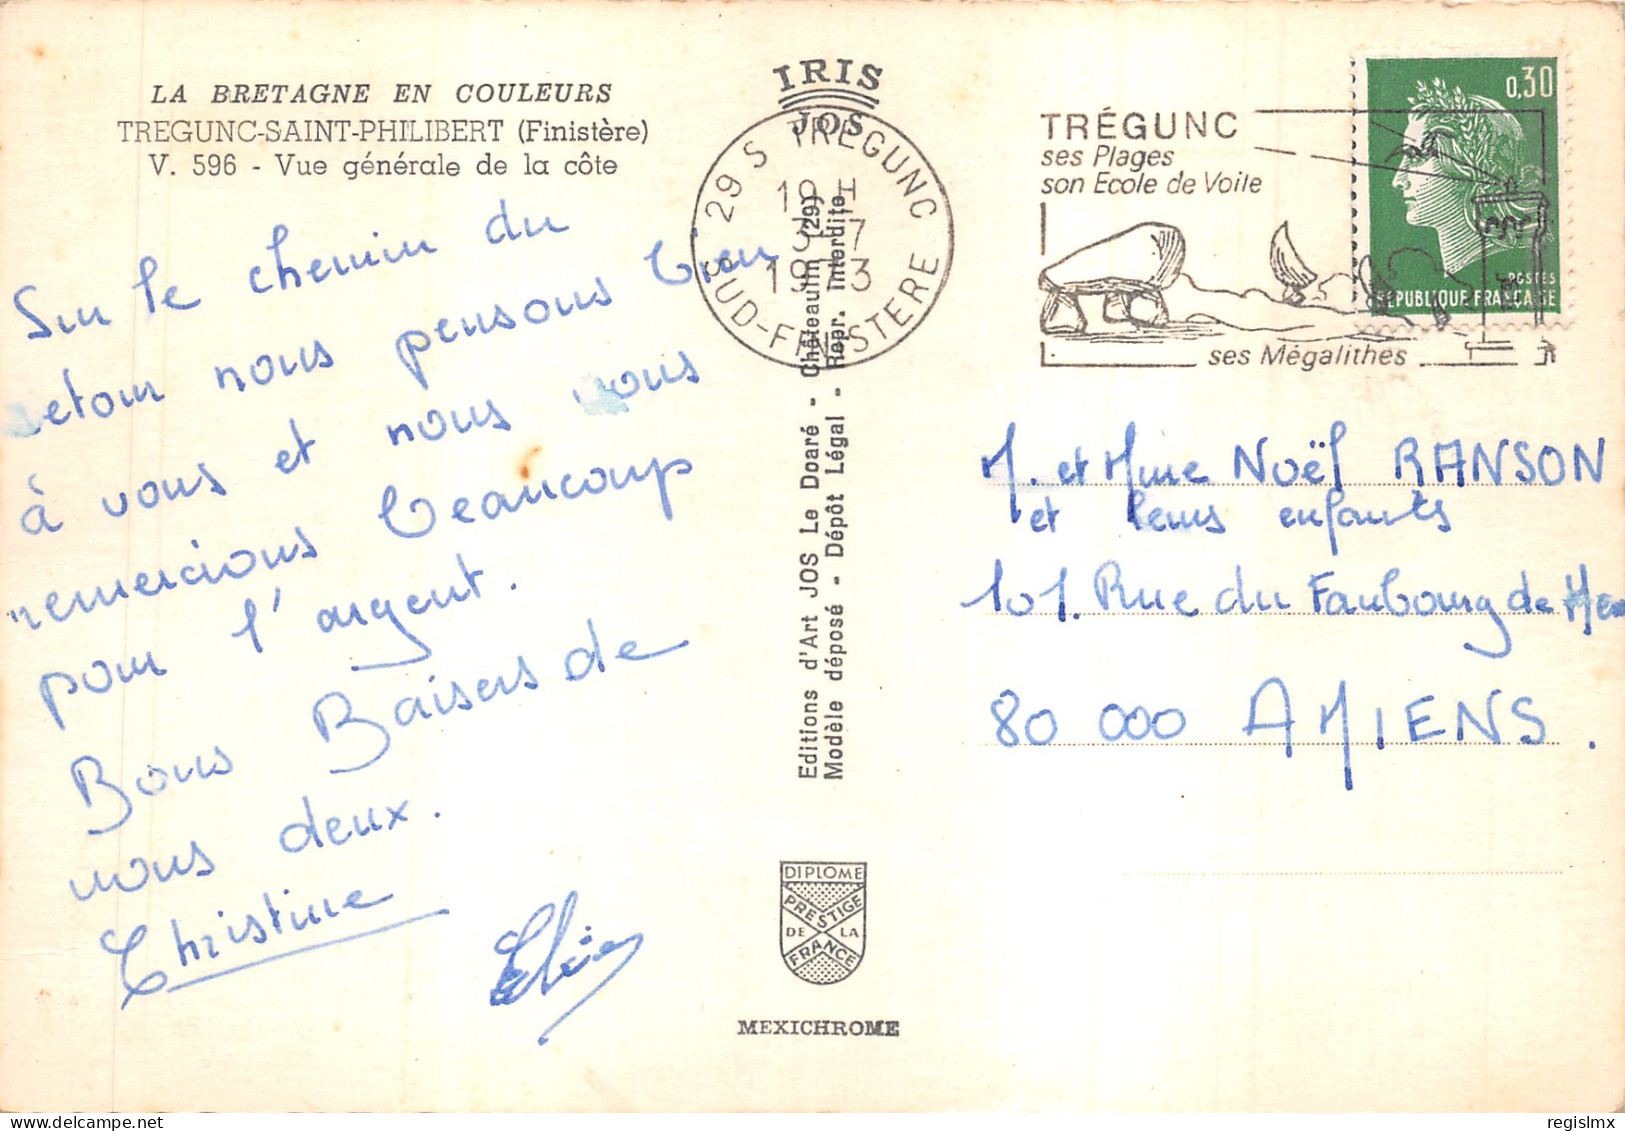 LA BRETAGNE EN COULEURS
TREGUNC-SAINT-PHILIBERT (Finistère)
V. 596 - Vue générale de la côte
Sur le chemin du
retour nous pensons bien
à vous et nous vous
remercions beaucoup
pour l'argent.
Bons Baisers de
nous deux.
Christine
IRIS
JOS
29 S TREGUNC
19 H
SUD-FINISTERE
Editions d'Art JOS Le Doaré - Châteaulin (29)
Modèle déposé - Dépôt Légal - Repr. Interdite
DIPLOME
PRESTIGE
DE LA
FRANCE
MEXICHROME
TRÉGUNC
ses Plages
son Ecole de Voile
ses Mégalithes
0,30
POSTES
REPUBLIQUE FRANÇAISE
M. et Mme NOËL RANSON
et leurs enfants
101. Rue du Faubourg de
80 000 AMIENS.
regislmx